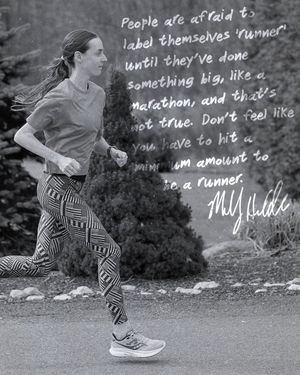 People are afraid to
label themselves 'runner'
until they've done
something big, like a
marathon, and that's
not true. Don't feel like
you have to hit a
minimum amount to
be a runner.